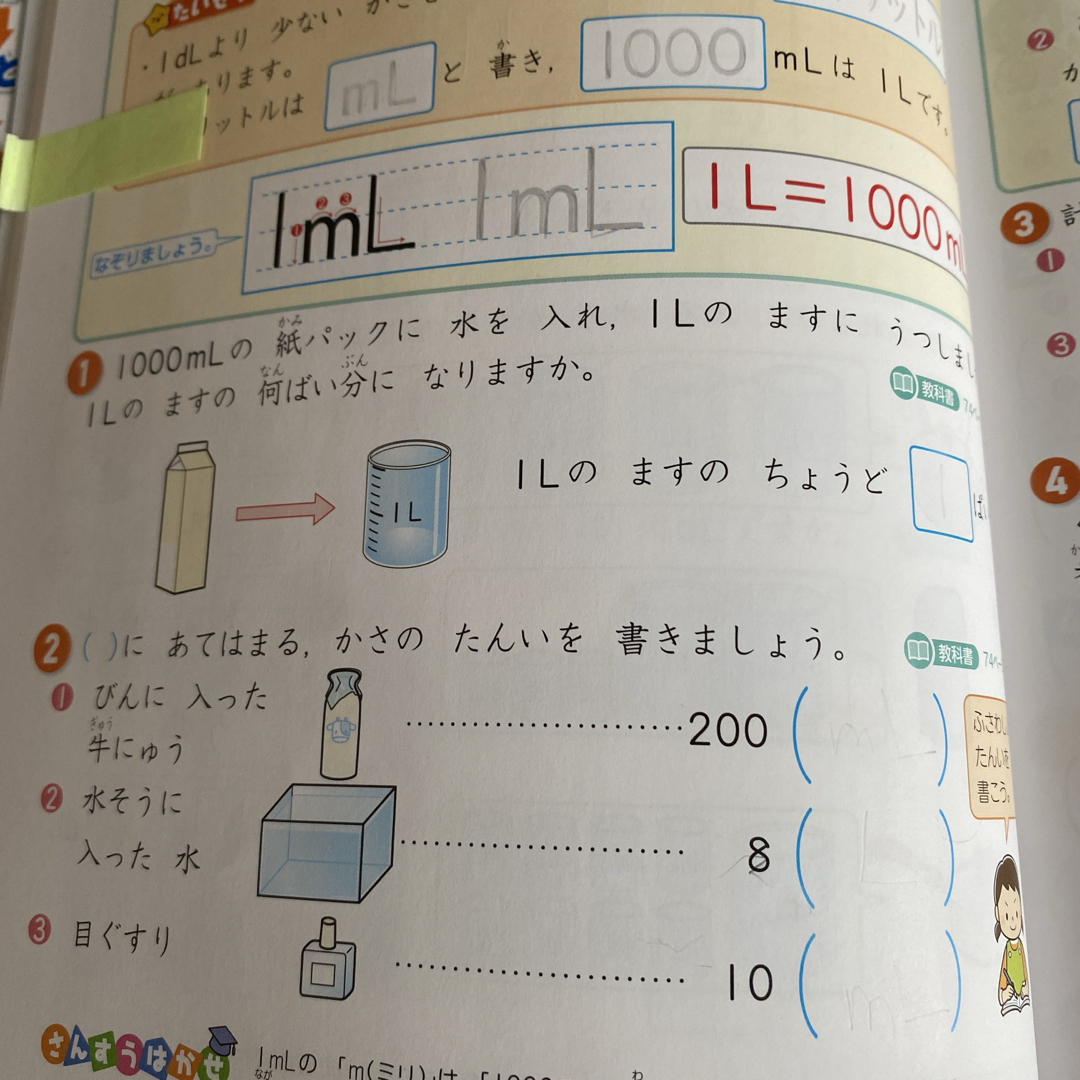 たいせつ
・1dLより 少ない かさを
あります。
リットルは mL と 書き, 1000 mLは 1Lです。
か
なぞりましょう。
1mL 1mL
1L=1000mL
1 1000mLの 紙パックに 水を 入れ, 1Lの ますに うつしまし
かみ
1Lの ますの 何ばい分に なりますか。
なん ぶん
教科書 74ペ
1L
1Lの ますの ちょうど 1 ぱい
2 ( )に あてはまる, かさの たんいを 書きましょう。
教科書 74ペー
1 びんに 入った
牛にゅう
ぎゅう
200 ( mL )
2 水そうに
入った 水
8 ( L )
3 目ぐすり
10 ( mL )
ふさわし
たんいを
書こう。
さんすうはかせ
1mLの 「m(ミリ)」は
なが
わ
2
3 計
1
3
4